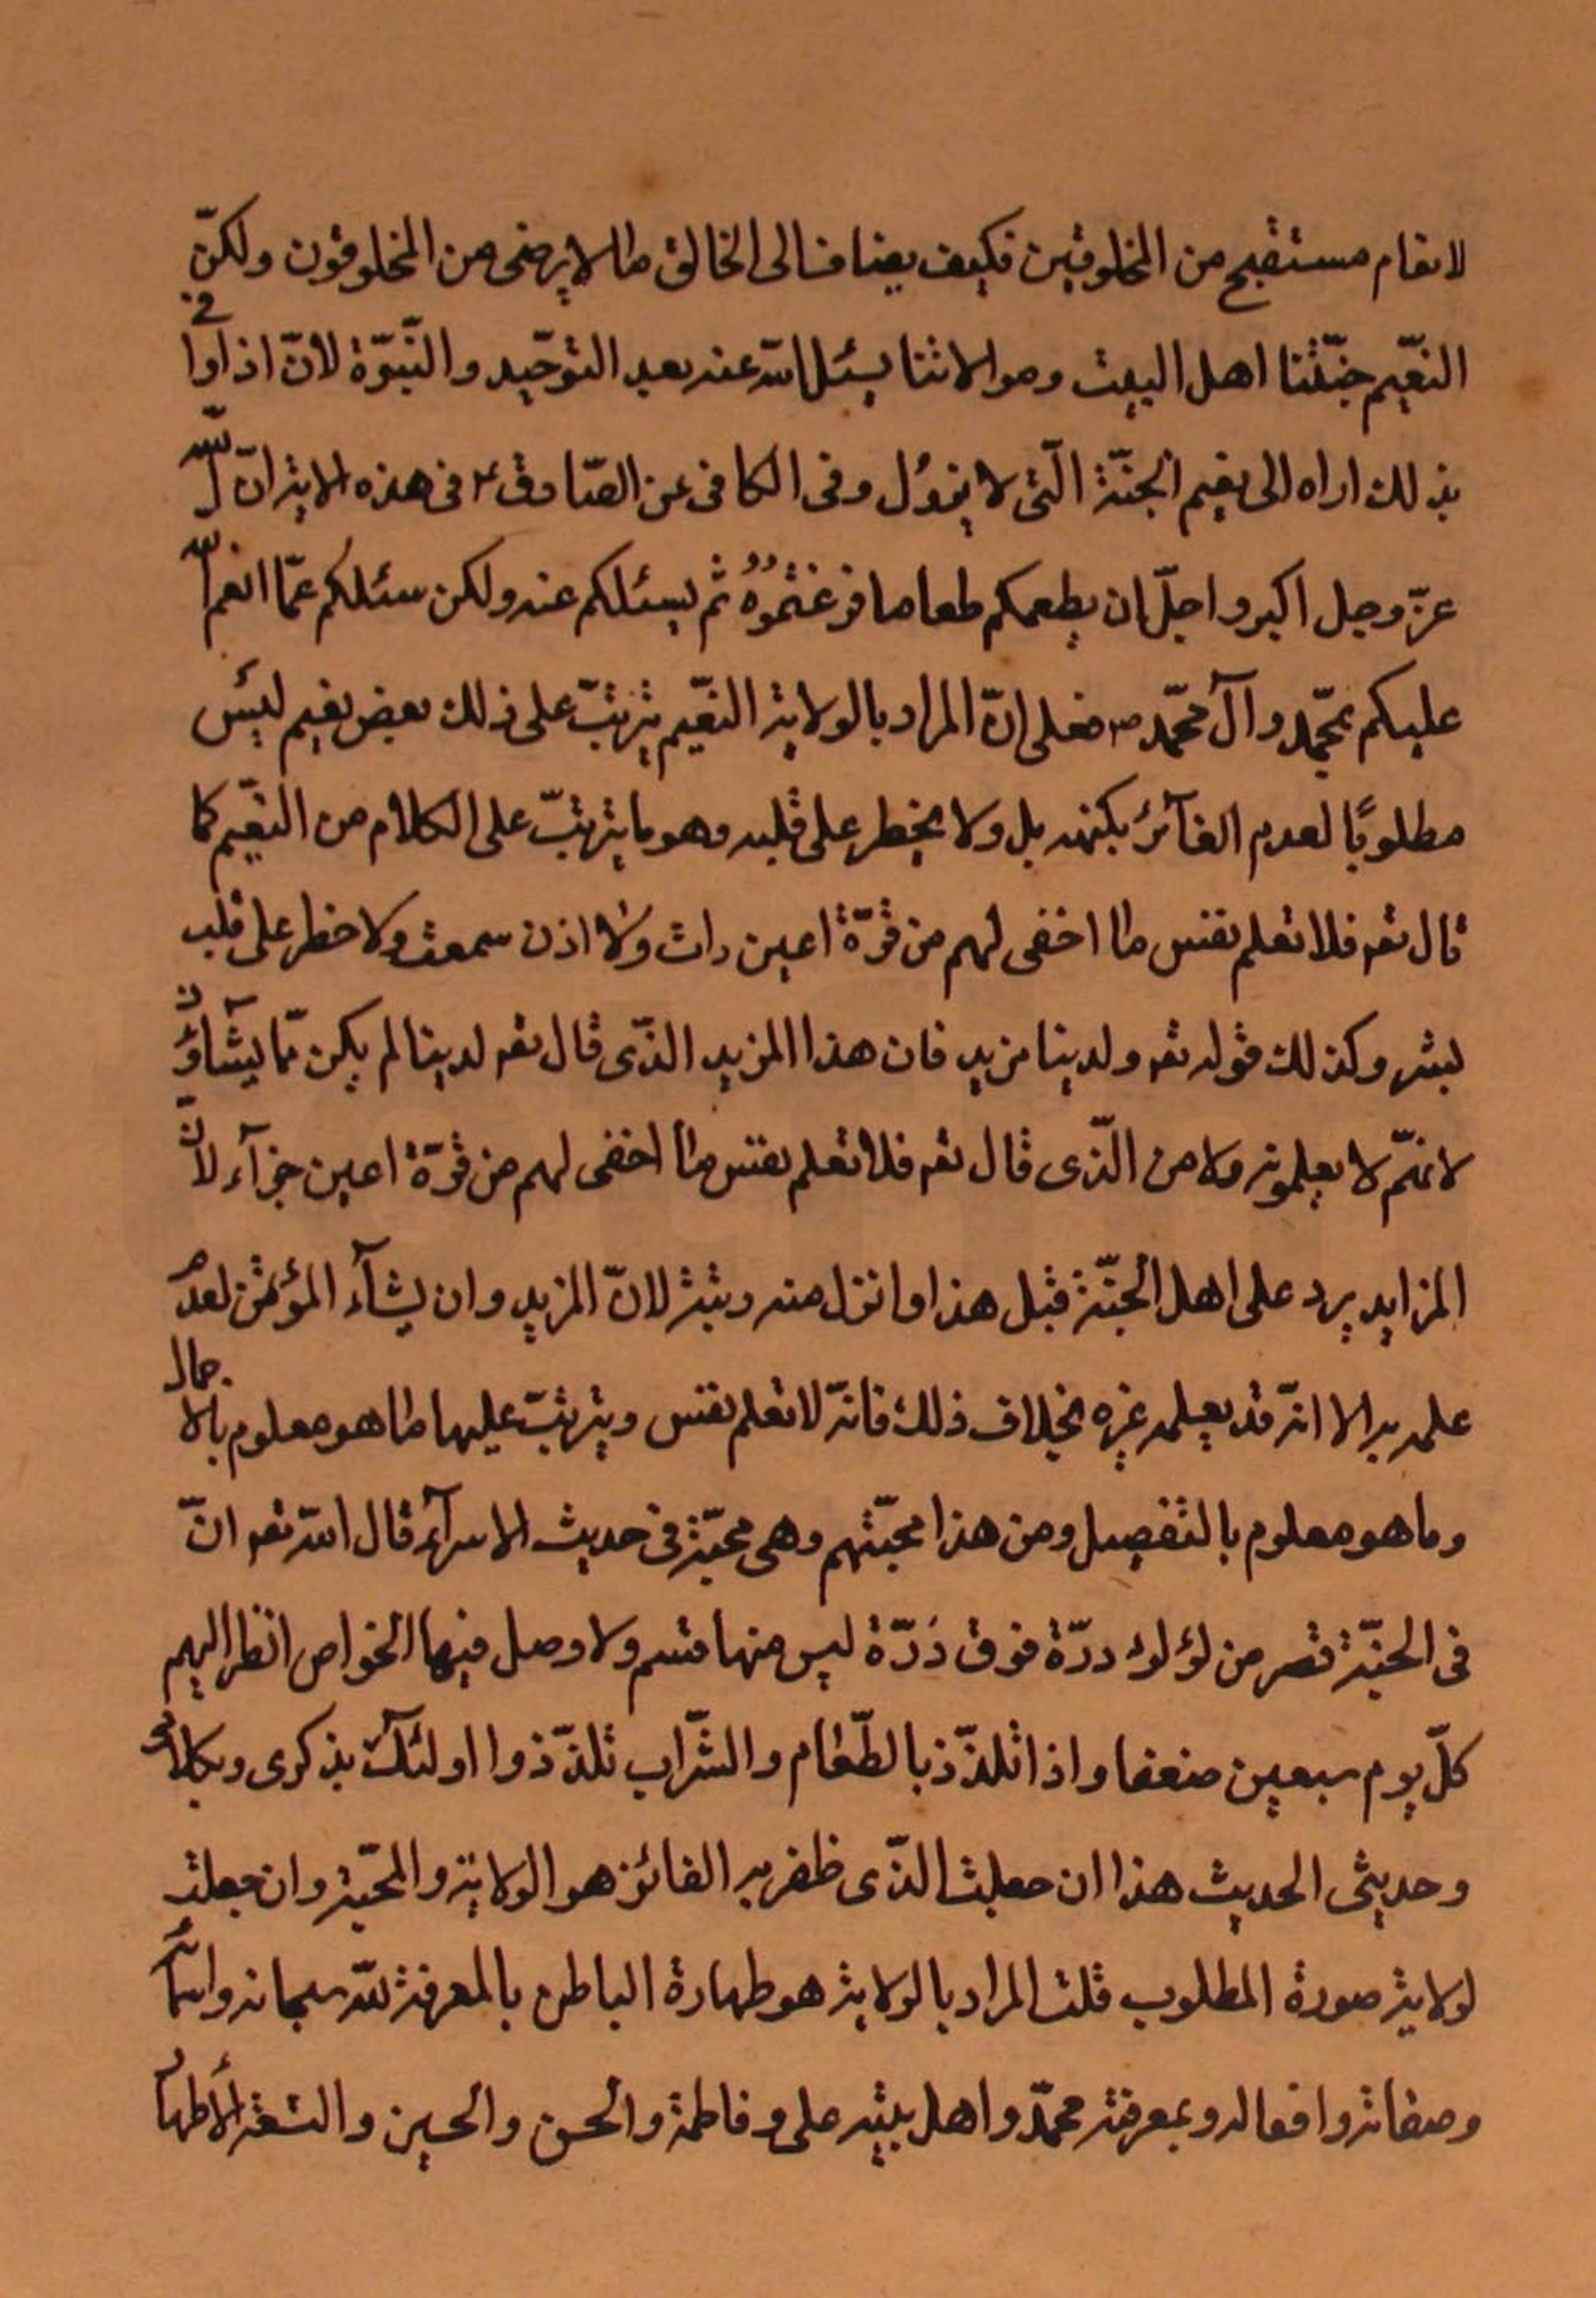 لانعام مستقبح من المخلوقين فكيف يضاف الى الخالق ما لا يرضى من المخلوقون ولكنّ
النعّيم حبّنا اهل البيت وموالاتنا يسئل اللّه عنه بعد التوحّيد والنّبوّة لانّ اذا وافى
بذلك اراه الى نعيم الجنّة الّتى لا يزول وفى الكافى عن الصّادق ع فى هذه الاية انّ اللّه
عزّ وجل اكبر واجلّ ان يطعمكم طعاما فرغتموه ثم يسئلكم عنه ولكن سئلكم عمّا انعم اللّه
عليكم بمحّمد وآل محمّد ص فعلى انّ المراد بالولاية النعّيم يترتبّ على ذلك بعض نعيم ليس
مطلوبًا لعدم الفآئز بكنهه بل ولا يخطر على قلبه وهو ما يترتبّ على الكلام من النعّيم كما
قال تعه فلا تعلم نفس ما اخفى لهم من قرّة اعين رات ولا اذن سمعت ولا خطر على قلب
بشر وكذلك قوله تعه ولدينا مزيد فان هذا المزيد الذّى قال تعه لدينا لم يكن ممّا يشآؤن
لانهّم لا يعلمونه ولا من الّذى قال تعه فلا تعلم نفس ما اخفى لهم من قرّة اعين جزآء لانّ
المزايد يرد على اهل الجنّة قبل هذا وانزل منه رتبة لانّ المزيد وان يشآء المؤمن لعدم
علمه به الا انّه قد يعلمه غيره بخلاف ذلك فانّه لا تعلم نفس ويترتبّ عليها ما هو معلوم بالاجمال
وما هو معلوم بالتفصيل ومن هذا محبّتهم وهى محبّة فى حديث الاسرآء قال اللّه تعه انّ
فى الجنّة قصر من لؤلؤ درّة فوق درّة ليس منها قسم ولا وصل فيها الخواص انظر اليهم
كلّ يوم سبعين ضعفا واذا تلذّذ بالطّعام والشّراب تلذّذوا اولئك بذكرى وبكلامى
وحديثى الحديث هذا ان جعلت الذّى ظفر به الفائز هو الولاية والمحبّة وان جعلت
لولاية صورة المطلوب قلت المراد بالولاية هو طهارة الباطن بالمعرفة للّه سبحانه واسمآئه
وصفاته وافعاله وبمعرفة محمّد واهل بيته على وفاطمة والحسن والحسين والتسعة الأطهار